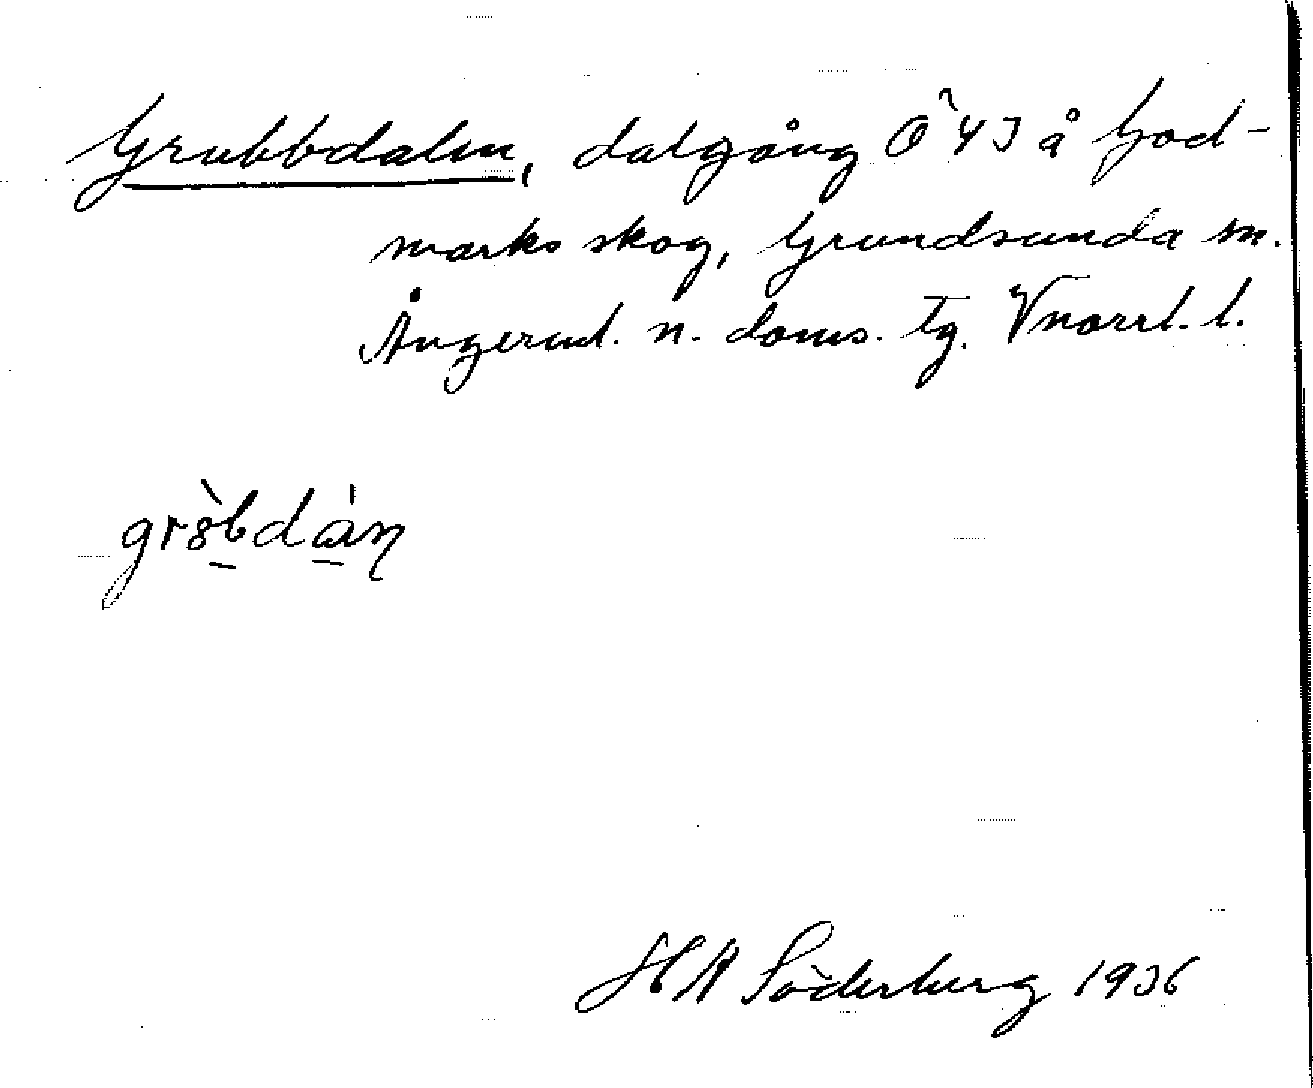 Grubbdalen, dalgång Ö 43 å God-
marks skog, Grundsunda sn.
Ångerml. n. doms. tg. Vnorrl. l.
grȍbdàn
H A Söderberg 1936